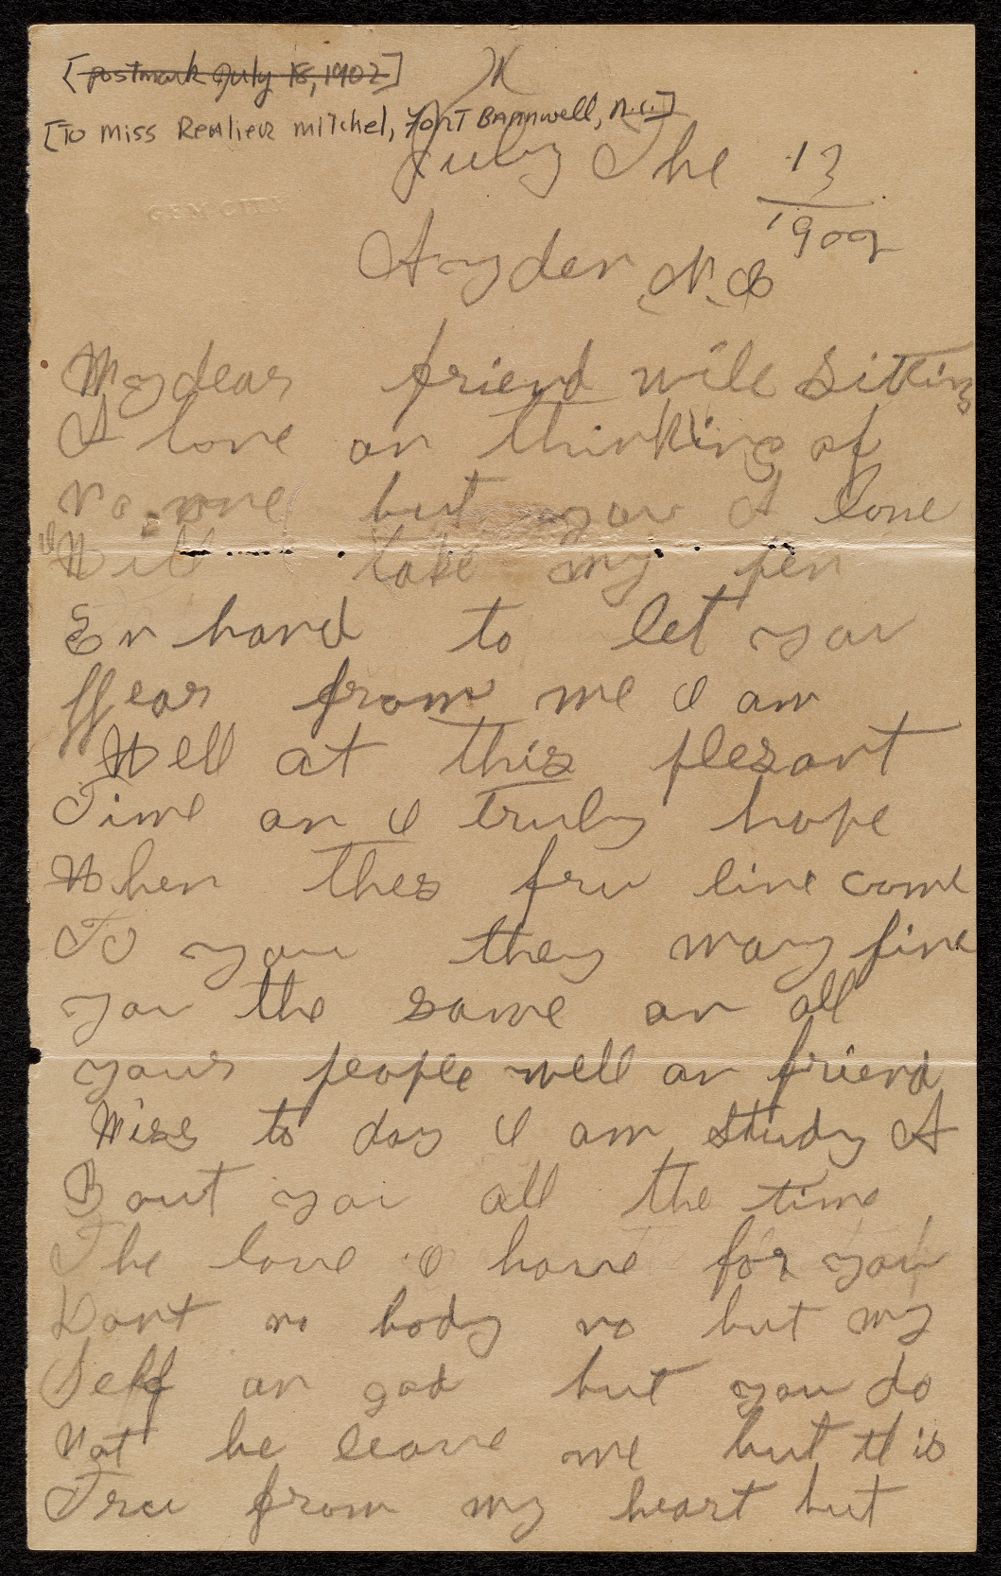 [postmark July 18, 1902]
[To Miss Realieur Mitchel, Fort Barnwell, N.C.]
July The 13
1902
GEM CITY
Ayden N.C
My dear friend wile Sitting
A lone an thinking of
No. one but you I lone
Will take my pen
En hand to let you
Hear from me I am
Well at this plesant
Time an I truly hope
When thes fru line come
To you they may fine
you the same an all
your people well an friend
Miss to day I am study A
Bout you all the time
The love I have for you
Dont no body no but my
Self an god but you do
Not be leave me but it is
Tru from my heart but